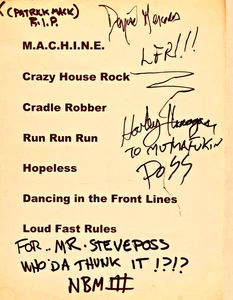 (PATRICK MACK)
R.I.P.
M.A.C.H.I.N.E.
LFR!!!
Crazy House Rock
Cradle Robber
Run Run Run
Harley
TO MUMAFUKIN
Hopeless
POSS
Dancing in the Front Lines
Loud Fast Rules
FOR.. MR. STEVEPOSS
WHO'DA THUNK IT!?!?
NBM III